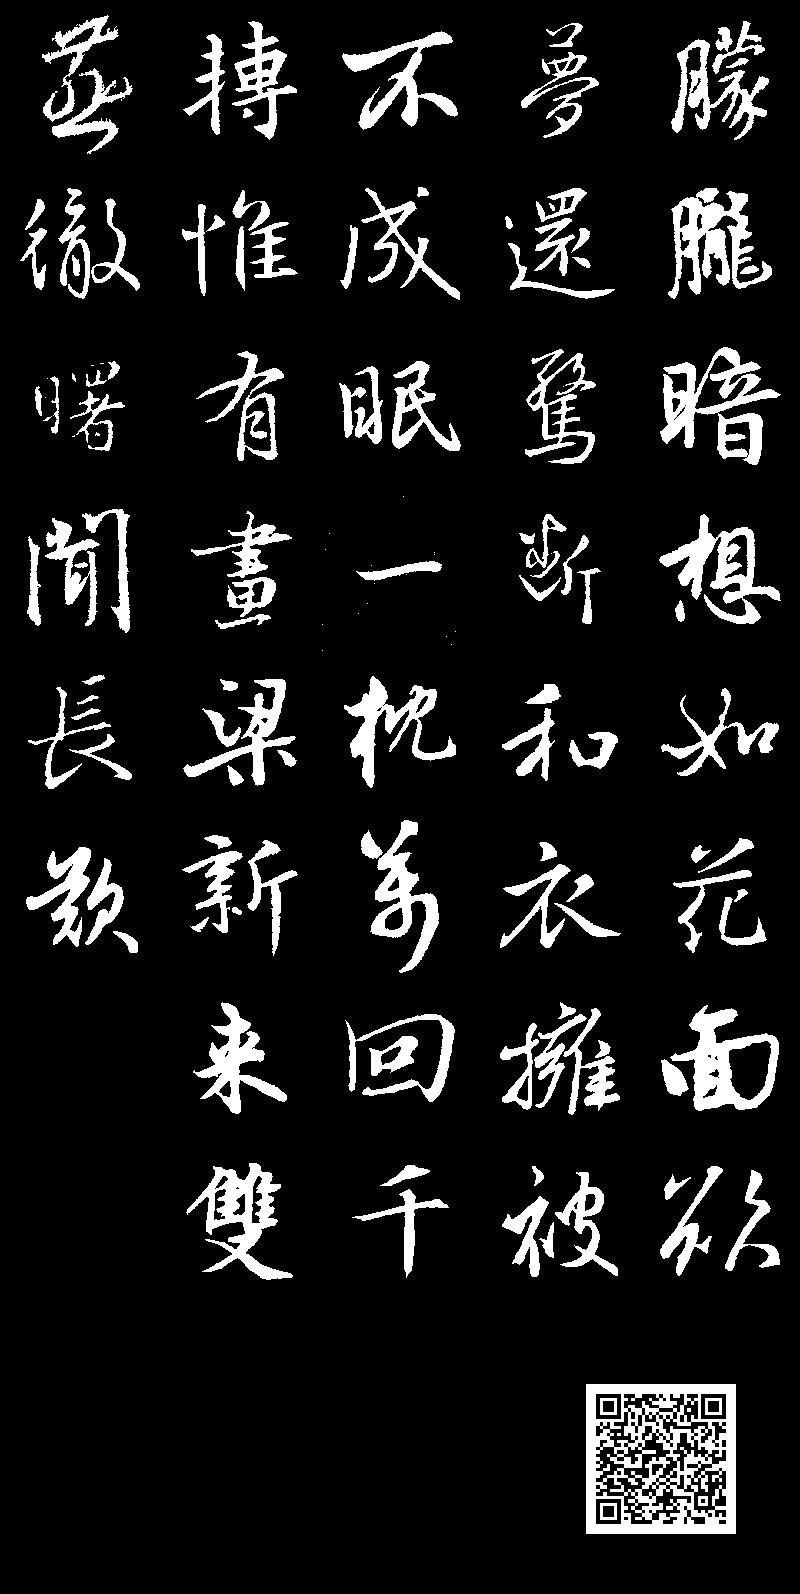 朦朧暗想如花面欲
夢還驚斷和衣擁被
不成眠一枕萬回千
轉惟有畫梁新来雙
燕徹曙聞長歎